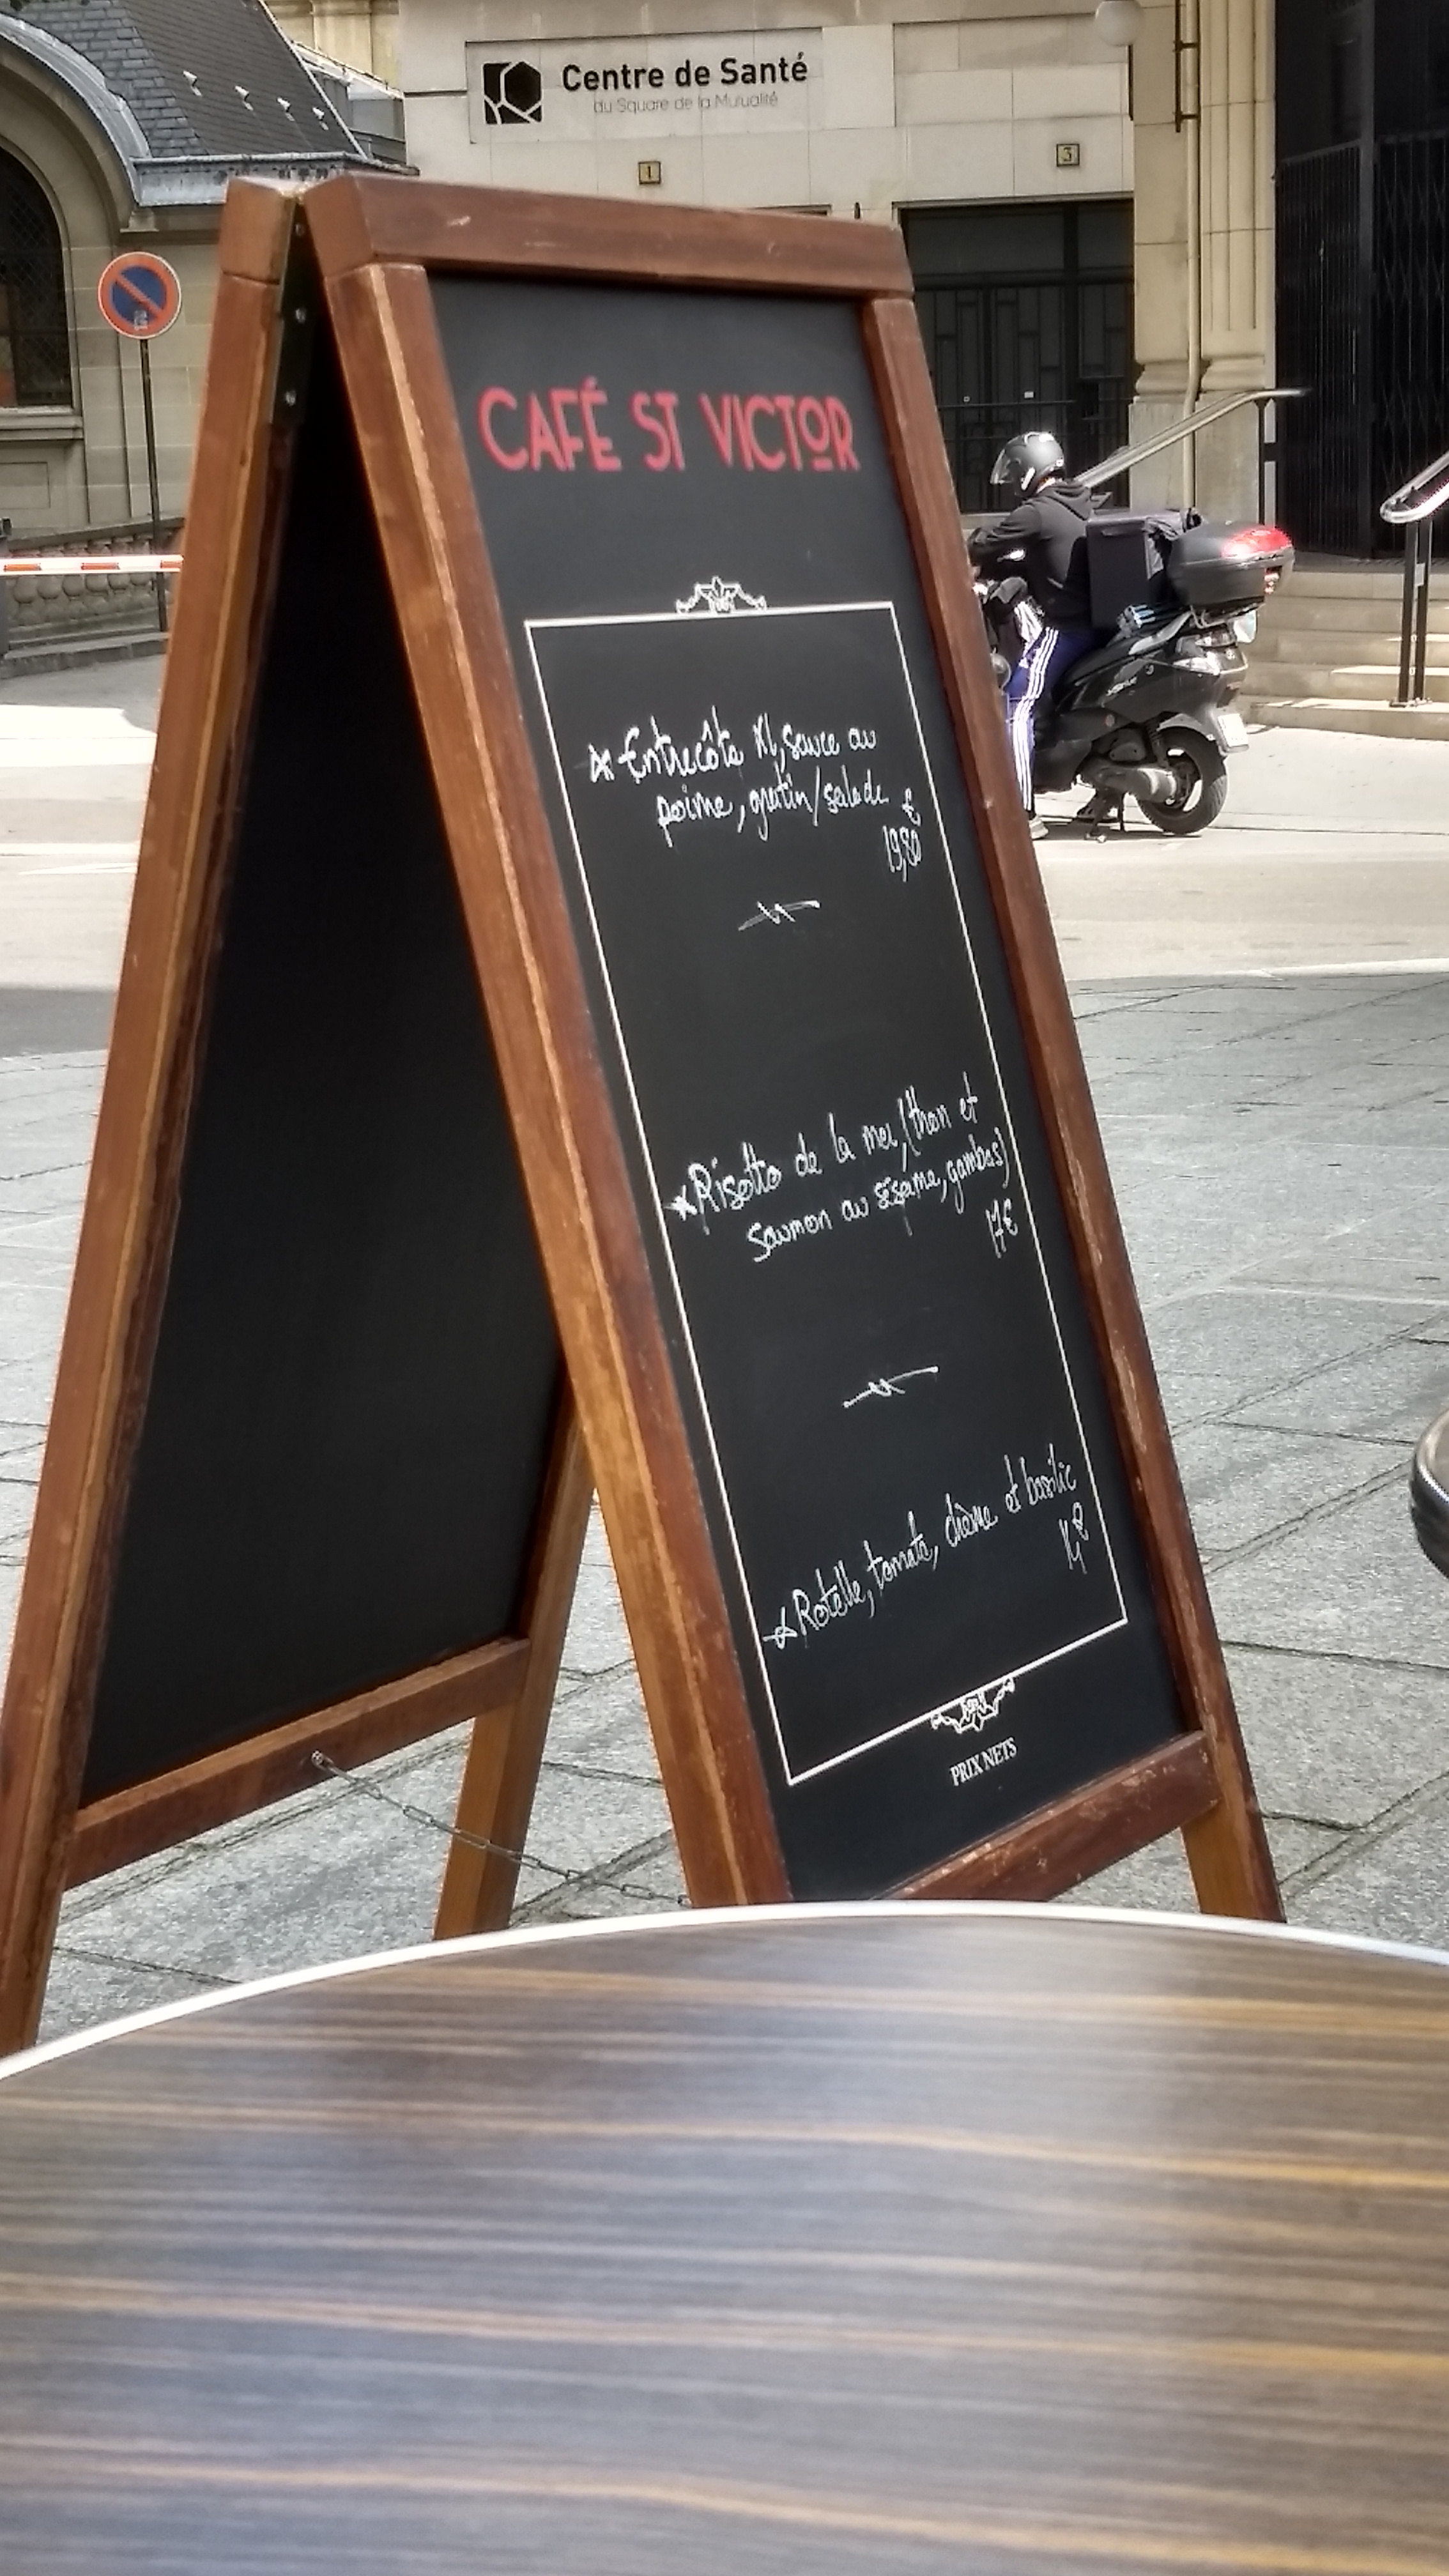 Centre de Santé
du Square de la Mutualité
1
3
CAFÉ ST VICTOR
Entrecôte XL, sauce au
poivre, gratin/salade
€
19,80
Risotto de la mer, (thon et
saumon au sésame, gambas)
17€
Rotelle, tomate, chèvre et basilic
PRIX NETS